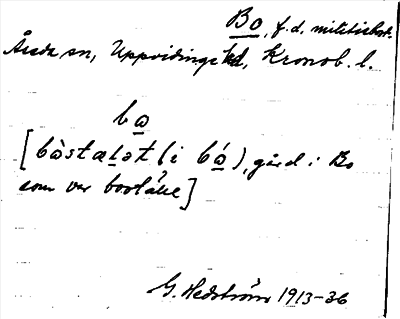 Bo, f.d. militiebost.
Åseda sn, Uppvidinge hd, Kronob. l.
bω
[bὼstalət (i bώ), gård i Bo
som var boställe]
G. Hedström 1913-36